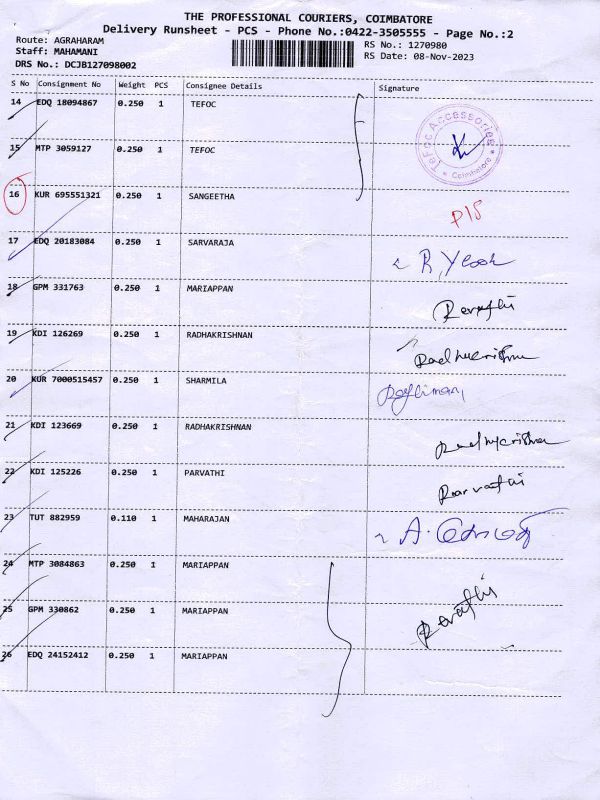 THE PROFESSIONAL COURIERS, COIMBATORE
Delivery Runsheet - PCS - Phone No.:0422-3505555 - Page No.:2
Route: AGRAHARAM
RS No.: 1270980
Staff: MAHAMANI
RS Date: 08-Nov-2023
DRS No.: DCJB127098002
S No Consignment No Weight PCS Consignee Details Signature
14 EDQ 18094867 0.250 1 TEFOC
TeFoc Accessories
* Coimbatore *
15 MTP 3059127 0.250 1 TEFOC
16 KUR 695551321 0.250 1 SANGEETHA
P15
17 EDQ 20183084 0.250 1 SARVARAJA
18 GPM 331763 0.250 1 MARIAPPAN
Revathi
19 KDI 126269 0.250 1 RADHAKRISHNAN
Radhakrishnan
20 KUR 7000515457 0.250 1 SHARMILA
21 KDI 123669 0.250 1 RADHAKRISHNAN
22 KDI 125226 0.250 1 PARVATHI
Parvathi
23 TUT 882959 0.110 1 MAHARAJAN
24 MTP 3084863 0.250 1 MARIAPPAN
25 GPM 330862 0.250 1 MARIAPPAN
Revathi
26 EDQ 24152412 0.250 1 MARIAPPAN